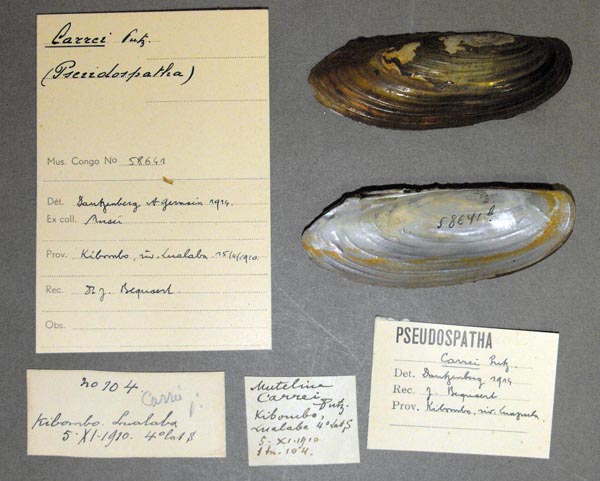 Carrei Putz.
(Pseudospatha)
Mus. Congo No 58641
Dét. Dautzenberg & Germain 1914.
Ex coll. Musée
Prov. Kibombo, riv. Lualaba 1910.
Rec. Dr J. Bequaert.
Obs.
58641
PSEUDOSPATHA
Carrei Putz.
Det. Dautzenberg 1914
Rec. J. Bequaert
Prov. Kibombo, riv.
No 104
Carrei
Kibombo. Lualaba
5-XI-1910. 4° lat S
Mutelina
Carrei Putz.
Kibombo,
Lualaba 4° lat S
5-XI-1910
104.